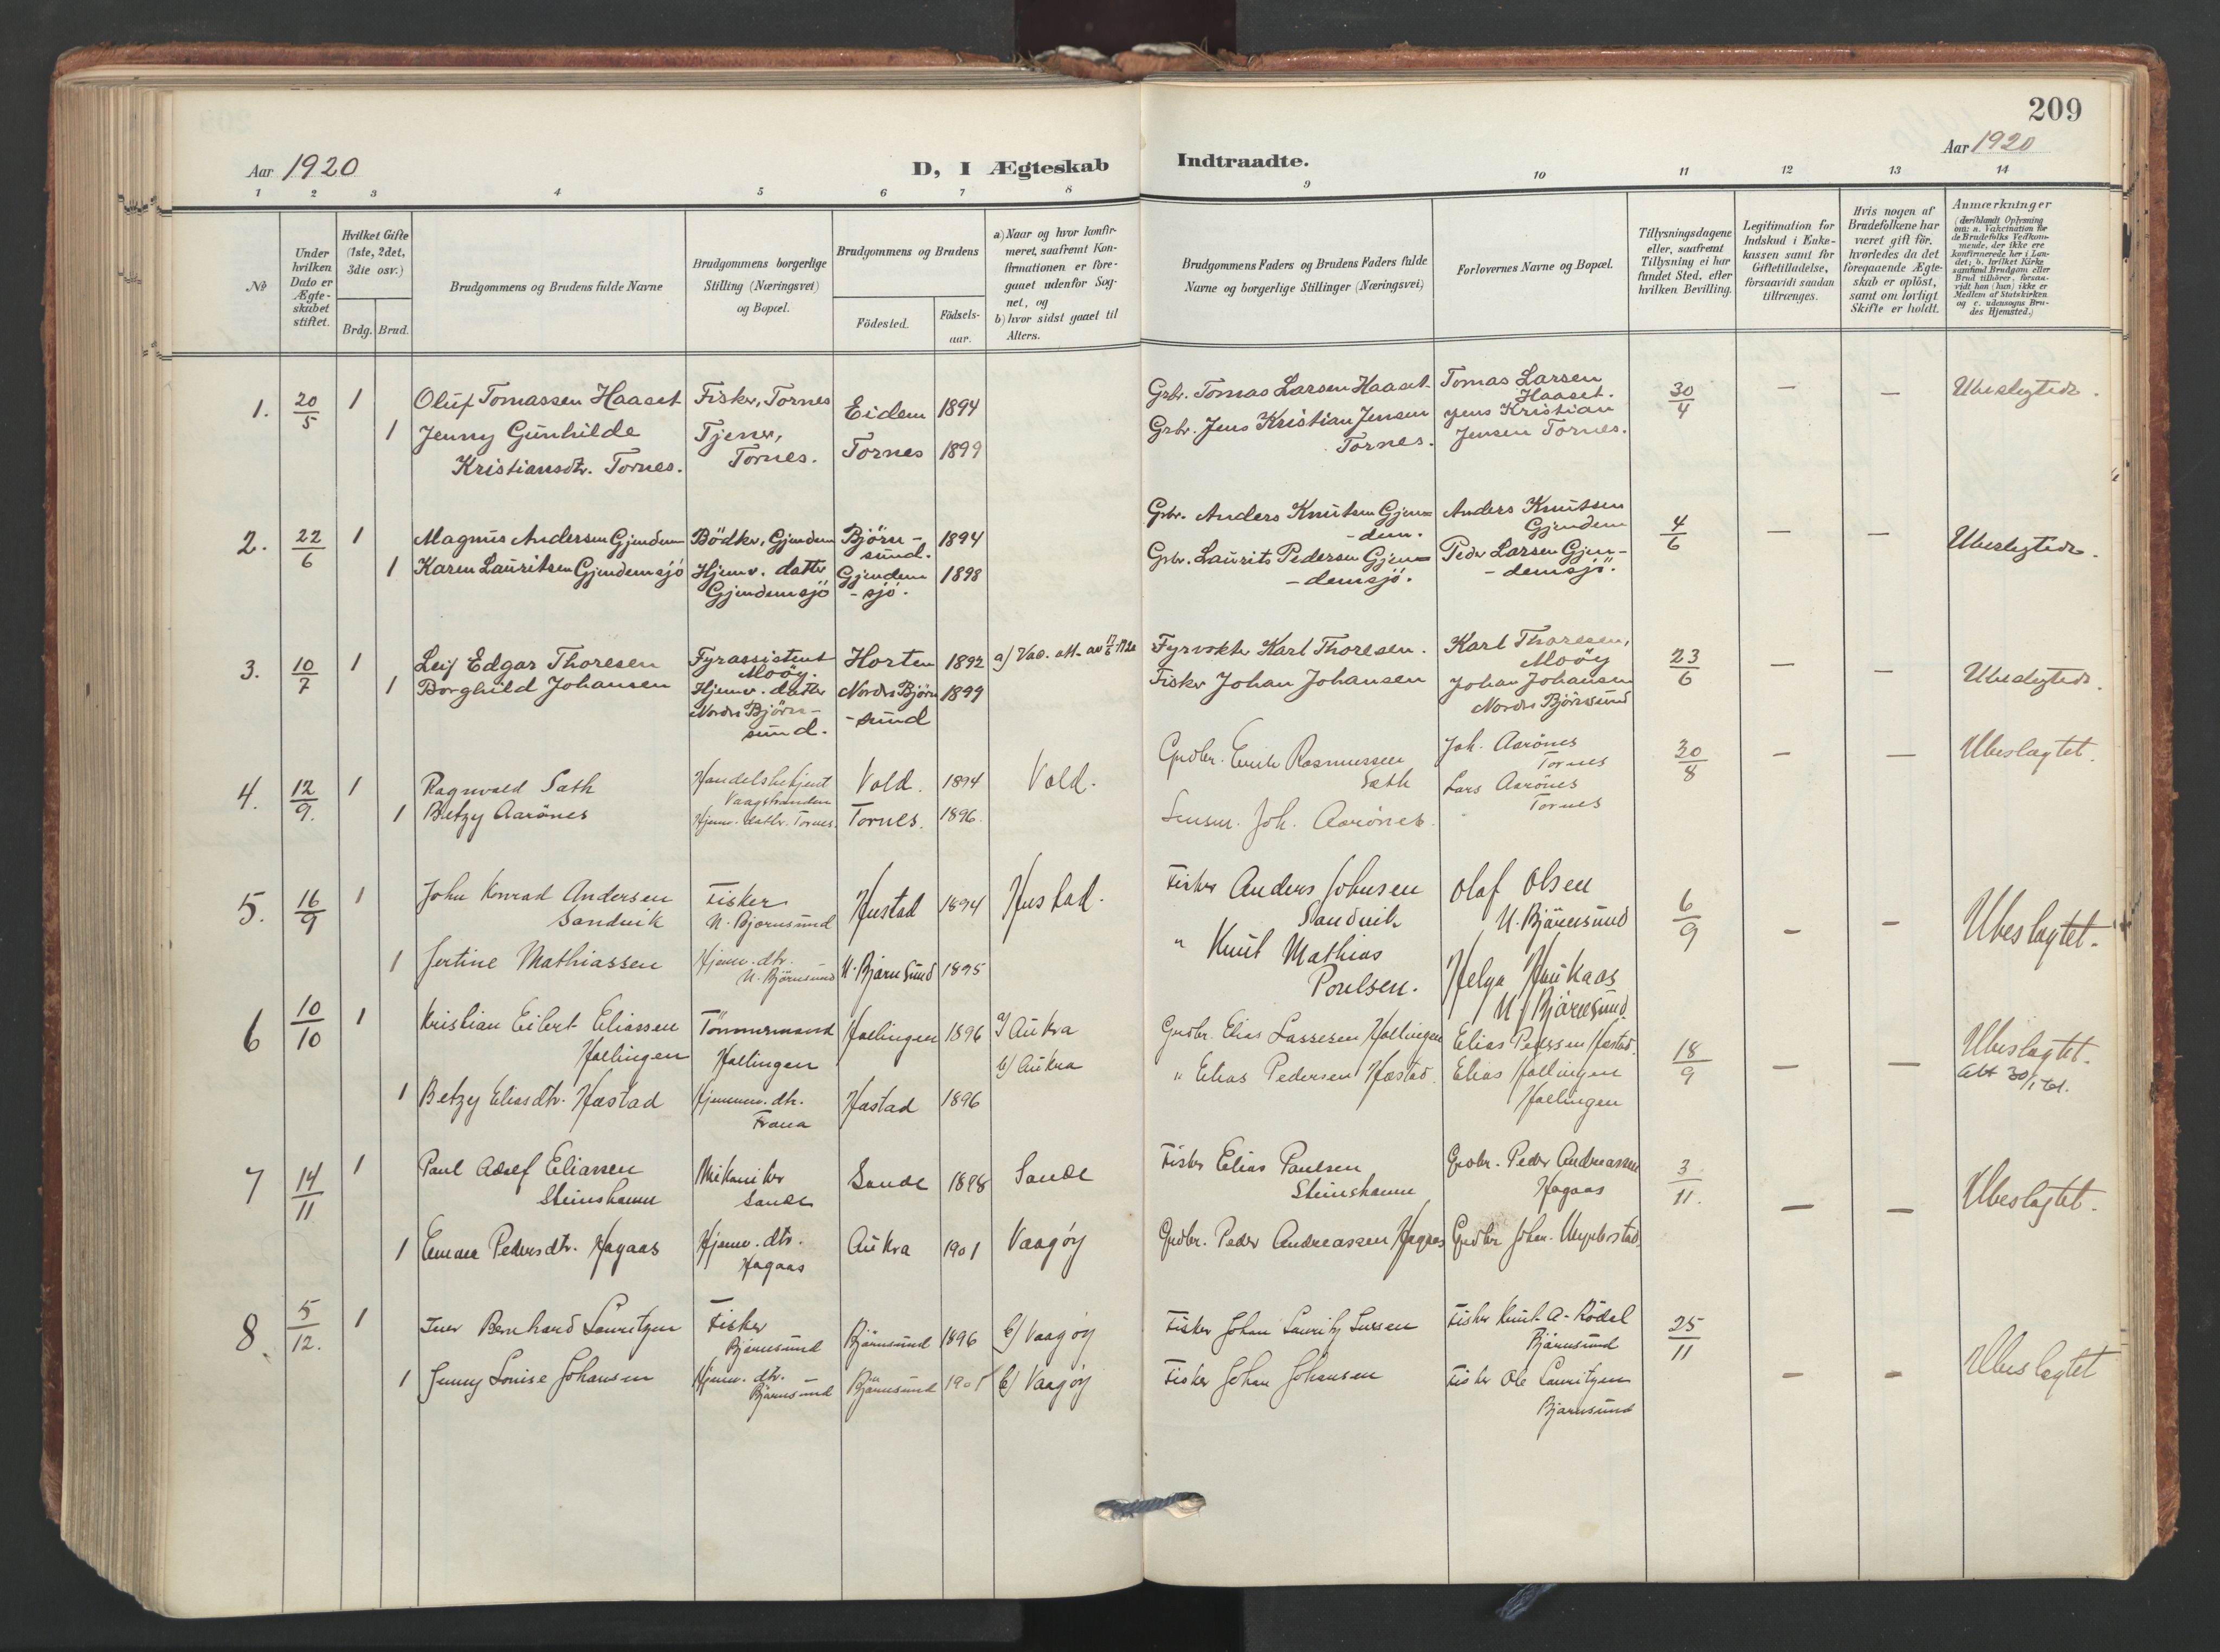 209
Aar 1920
D, I Ægteskab Indtraadte.
Aar 1920
1 2 3 4 5 6 7 8 9 10 11 12 13 14
No
Under hvilken Dato er Ægteskabet stiftet.
Hvilket Gifte (1ste, 2det, 3die osv.)
Brdg. Brud.
Brudgommens og Brudens fulde Navne
Brudgommens borgerlige Stilling (Næringsvei) og Bopæl.
Brudgommens og Brudens
Födested.
Födselsaar.
a) Naar og hvor konfirmeret, saafremt Konfirmationen er foregaaet udenfor Sognet, og
b) hvor sidst gaaet til Alters.
Brudgommens Faders og Brudens Faders fulde Navne og borgerlige Stillinger (Næringsvei)
Forlovernes Navne og Bopæl.
Tillysningsdagene eller, saafremt Tillysning ei har fundet Sted, efter hvilken Bevilling.
Legitimation for Indskud i Enkekassen samt for Giftetilladelse, forsaavidt saadan tiltrænges.
Hvis nogen af Brudefolkene har været gift för, hvorledes da det foregaaende Ægteskab er oplöst, samt om lovligt Skifte er holdt.
Anmærkninger
(deriblandt Oplysning om: a. Vakcination for de Brudefolks Vedkommende, der ikke ere konfirmerede her i Landet; b. hvilket Kirkesamfund Brudgom eller Brud tilhörer, forsaavidt han (hun) ikke er Medlem af Statskirken og c. udensogns Brudes Hjemsted.)
1. 20/5 1 Oluf Tomassen Haaset Fisker, Tornes Eidem 1894 Grbr. Tomas Larsen Haaset. Tomas Larsen Haaset. 30/4 — — Ubeslegtede.
1 Jenny Gunhilde Tjener, Tornes 1899 Grbr. Jens Kristian Jensen Jens Kristian
Kristiansdtr. Tornes. Tornes. Tornes. Jensen Tornes.
2. 22/6 1 Magnus Andersen Gjendem Bödker, Gjendem Björn- 1894 Grbr. Anders Knutsen Gjen= Anders Knutsen 4/6 — — Ubeslegtede.
sund. -dem. Gjendem
1 Karen Lauritsen Gjendemsjö Hjemv. datter Gjendem 1898 Grbr. Laurits Pedersen Gjen= Peder Larsen Gjen-
Gjendemsjö -sjö. -demsjö. -demsjö.
3. 10/7 1 Leif Edgar Thoresen Fyrassistent Horten 1892 a) Vac. att. av Fyrvokter Karl Thoresen. Karl Thoresen, 23/6 — — Ubeslegtede.
Moöy. Moöy
1 Borghild Johansen Hjemv. datter Nordre Björn 1899 Fisker Johan Johansen Johan Johansen
Nordre Björn- -sund Nordre Björnsund
sund.
4. 12/9. 1 Ragnvald Sæth Handelsbetjent Vold. 1894 Vold. Grdbr. Rasmussen Joh. Aarönes 30/8 — — Ubeslagtet.
Vaagstranden Sæth Tornes
1 Betzy Aarönes Hjemv. datter. Tornes. Tornes. 1896. Lensm. Joh. Aarönes. Lars Aarönes
Tornes
5. 16/9 1 John Konrad Andersen Fisker Hustad 1894 Hustad. Fisker Anders Johnsen Olaf Olsen 6/9 — — Ubeslagtet.
Sandvik N. Bjørnsund Sandvik N. Bjørnsund
1 Jertine Mathiassen Hjemv. dtr. N. Bjørnsund 1895 " Knut Mathias Helge Haukaas
N. Bjørnsund Poulsen. N. Bjørnsund.
6 10/10 1 Kristian Eilert Eliassen Tömmermand Hollingen 1896 a) Aukra Grdbr. Elias Lassesen Hollingen Elias Pedersen Hæstad. 18/9 — — Ubeslagtet.
Hollingen Hollingen b) Aukra Att 30/1 tel.
1 Betzy Eliasdtr. Hæstad Hjemmev. dtr. Hæstad 1896 " Elias Pedersen Hæstad. Elias Hollingen
Fræna Hollingen
7 14/11 1 Paul Adolf Eliassen Mekaniker Sande 1898 Sande Fisker Elias Paulsen Grdbr. Peder Andreassen 3/11. — — Ubeslagtet.
Steinshamn Sande Steinshamn Hagaas
1 Emma Pedersdtr. Hagaas Hjemv. dtr. Aukra 1901 Vaagöy Grdbr. Peder Andreassen Hagaas Grdbr Johan
Hagaas
8. 5/12. 1 Iver Bernhard Lauritzen Fisker Bjørnsund 1896 b) Vaagöy Fisker Johan Lauritz Fisker Knut A. Rödal 25/11 — — Ubeslagtet
Bjørnsund Bjørnsund
1 Jenny Louise Johansen Hjemv. dtr. Bjørnsund b) Vaagöy Fisker Johan Johansen Fisker Ole Lauritzen
Bjørnsund Bjørnsund